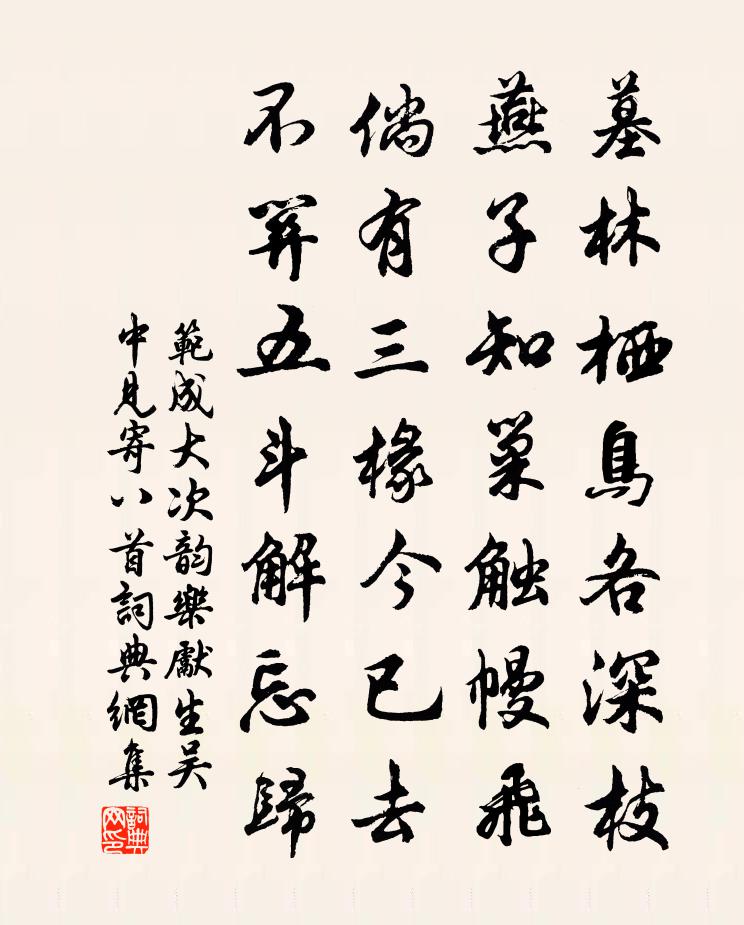 墓林栖鳥各深枝
燕子知巢触幔飛
倘有三椽今已去
不筭五斗解忘歸
範成大次韵樂獻生吴
中見寄八首詞典網集
詞典网印